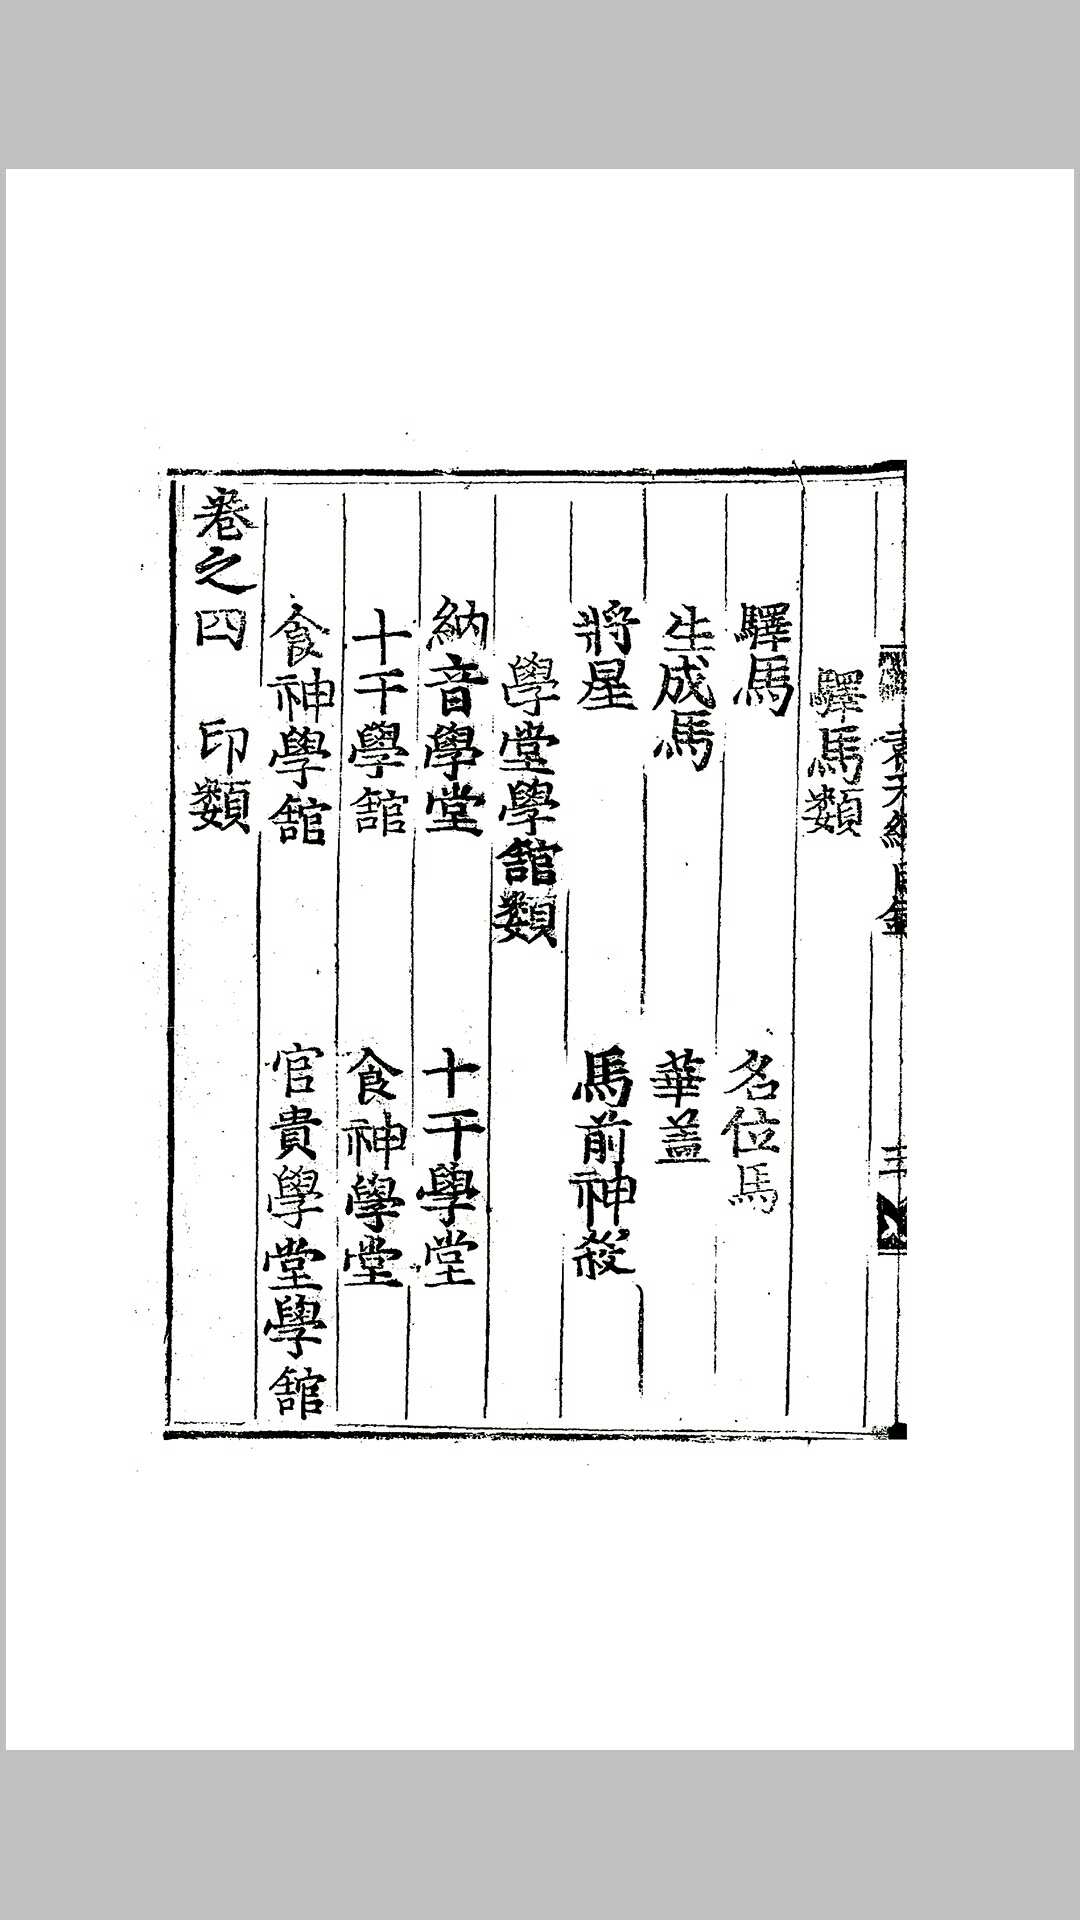 驛馬類
驛馬 名位馬
生成馬 華盖
將星 馬前神殺
學堂學舘類
納音學堂 十干學堂
十干學舘 食神學堂
食神學舘 官貴學堂學舘
卷之四 印類